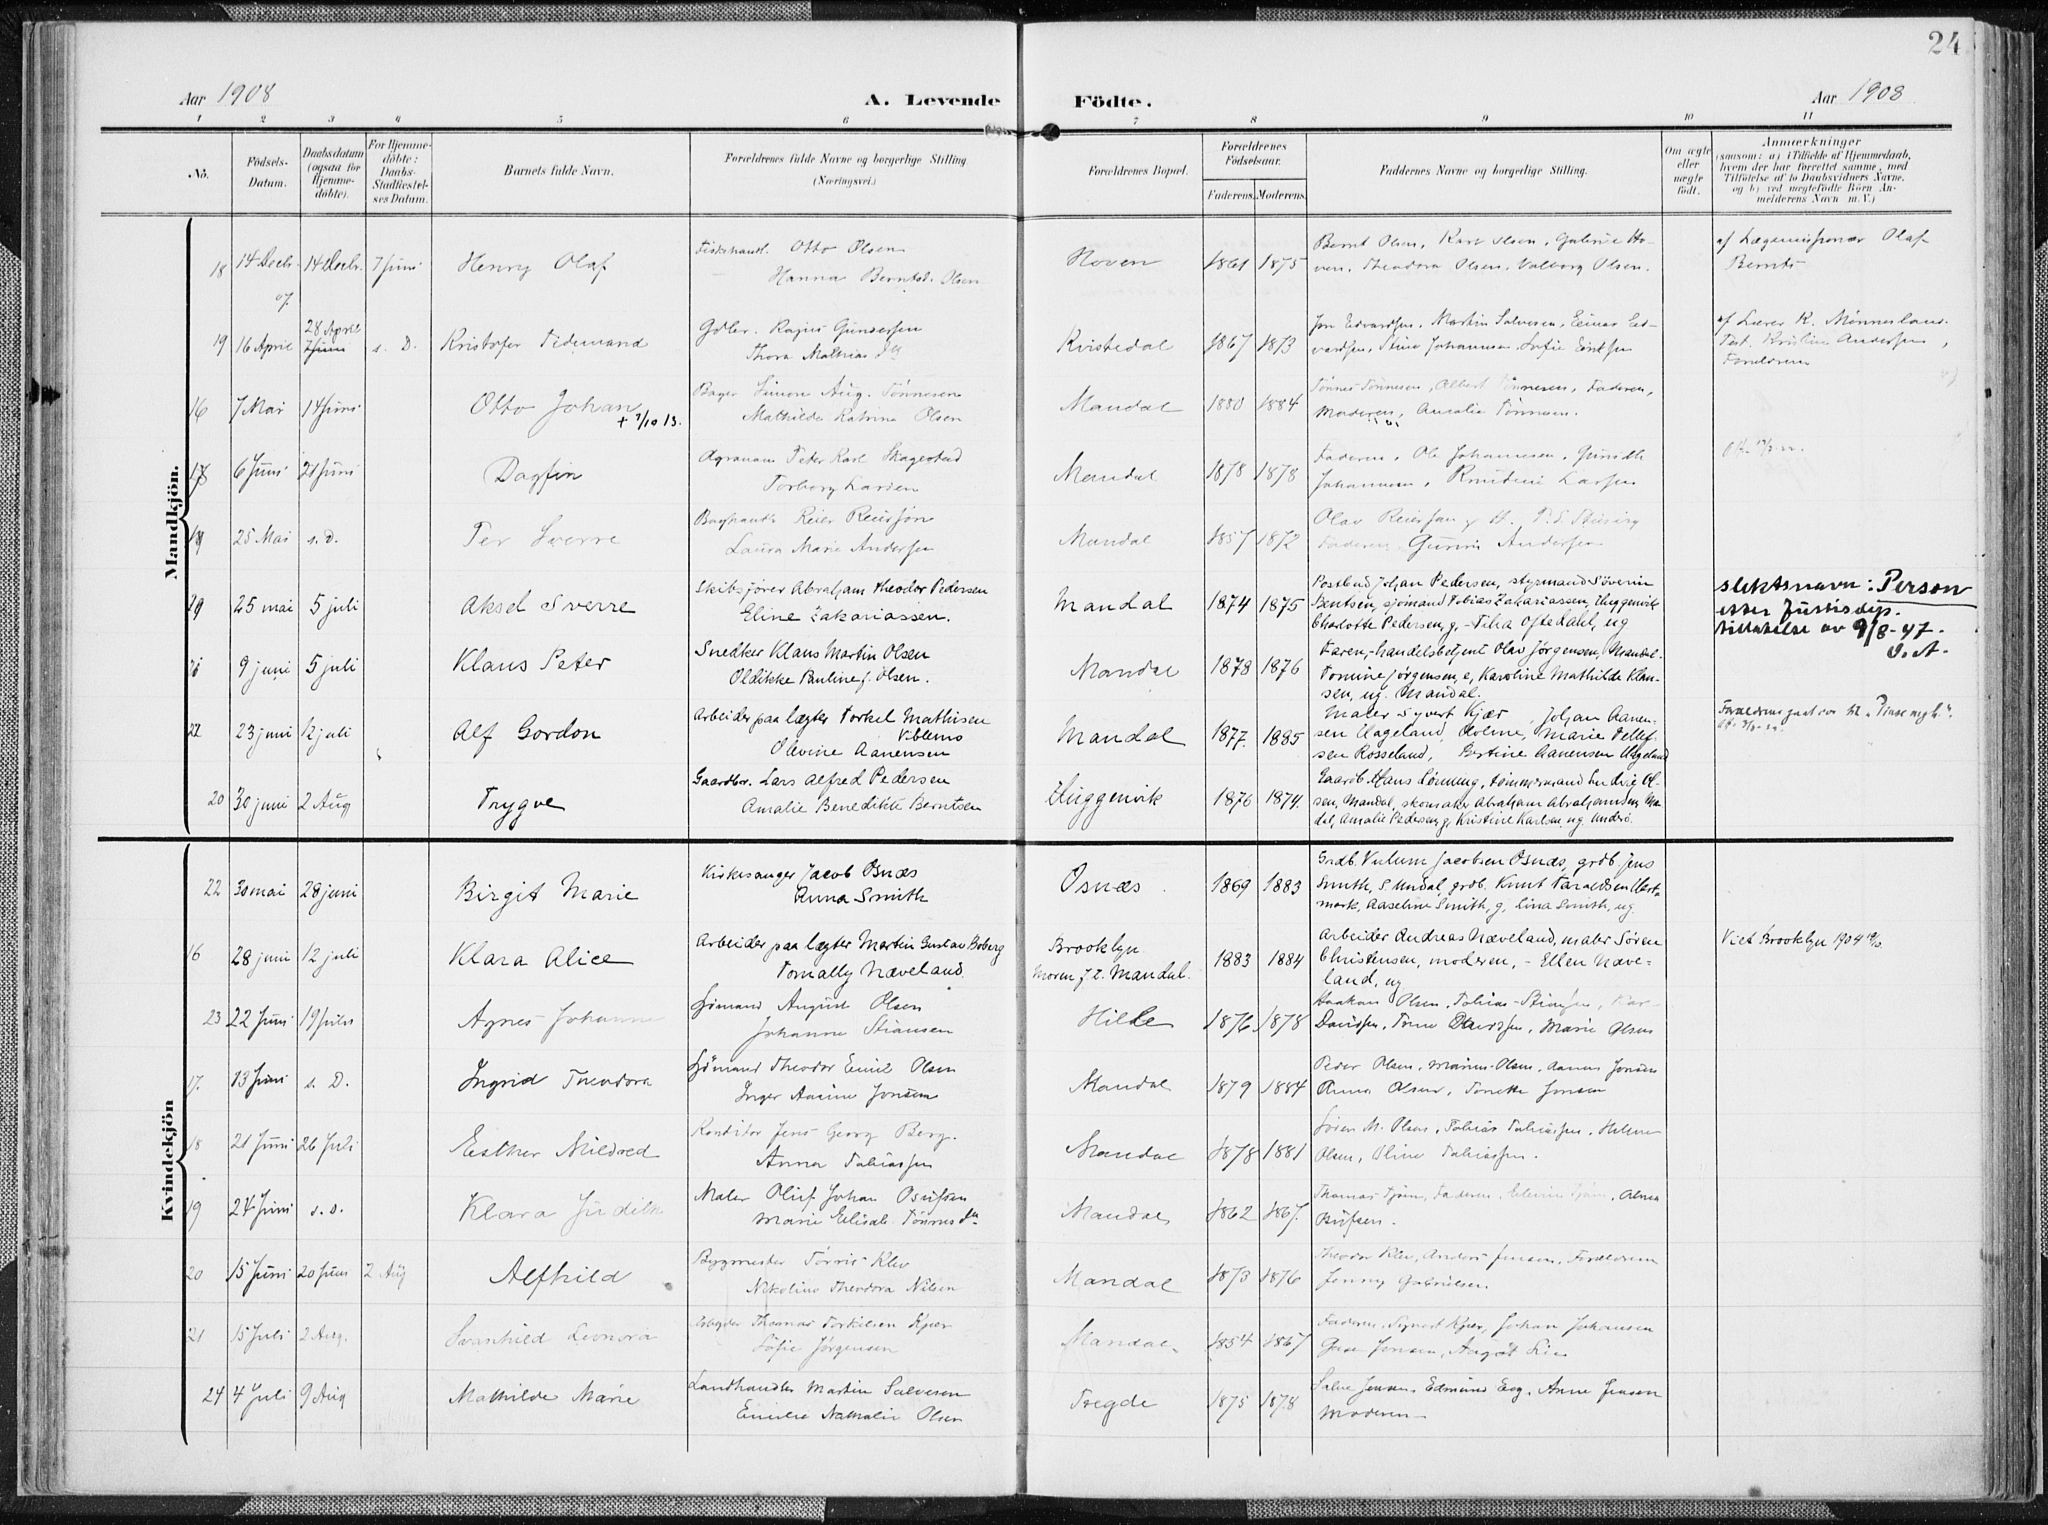 24
Aar 1908
A. Levende Födte.
Aar 1908
1 2 3 4 5 6 7 8 9 10 11
No.
Födsels-
Datum.
Daabsdatum
(ogsaa for
Hjemme-
döbte).
For Hjemme-
döbte:
Daabs-
Stadfæstel-
ses Datum.
Barnets fulde Navn.
Forældrenes fulde Navne og borgerlige Stilling
(Næringsvei.)
Forældrenes Bopæl.
Forældrenes
Födselsaar.
Faderens. Moderens.
Faddernes Navne og borgerlige Stilling.
Om ægte
eller
uægte
født.
Anmærkninger
(saasom: a) i Tilfælde af Hjemmedaab,
hvem der har forrettet samme, med
Tilføielse af to Daabsvidners Navne,
og b) ved uægtefödte Börn An-
melderens Navn m. V.)
Mandkjön.
18 14 Decbr. 07. 14 Decbr. 7 Juni Henry Olaf
Fiskehandl. Otto Olsen
Hanna Berntsd. Olsen
Hoven 1861 1875
Bernt Olsen, Karl Olsen, Gabriel Ho-
ven, Theodora Olsen, Valborg Olsen.
af Lægemissionær Olaf
Bernts
19 16 April 28 April 7 Juni s. D. Kristofer Tidemand
Gdbr. Gundersen
Thora Mathiasd
Kvisledal 1867 1873
Edvardsen, Martin Salvesen, Einar Ed-
vardsen, Stine Johannesen, Sofie
af Lærer K. Mønnesland.
Test. Kristine Andersen,
Forældrene
16 7 Mai 14 Juni Otto Johan
+ 7/10 13.
Bager Simon Aug. Tönnesen
Mathilde Katrine Olsen
Mandal 1880 1884
Tönnes Tönnesen, Albert Tönnesen, Faderen,
Moderen, Amalie Tönnesen.
17 6 Juni 21 Juni Dagfin
Agronom Peter Karl Skagestad
Torborg Larsen
Mandal 1878 1878
Faderen, Ole Johannesen, Gunild
Johannesen, Larsen
18 25 Mai s. D. Per Sverre
Reier Reiersen
Laura Marie Andersen
Mandal 1857 1872
Olav Reiersen
Faderen, Gunni Andersen
19 25 mai 5 juli Aksel Sverre
Skibsförer Abraham Theodor Pedersen
Eline Zakariassen.
Mandal 1874 1875
Postbud Johan Pedersen, styrmand Söverin
Bentsen, sjömand Tobias Zakariassen, Uggenvik
Charlotte Pedersen, g, Tilla Oftedahl, ug
slektsnavn: Person
etter Justisdep.
tillatelse av 9/8-47.
9 juni 5 juli Klaus Peter
Snedker Klaus Martin Olsen
Oldikke Pauline f. Olsen.
Mandal 1878 1876
Faren, handelsbetjent Olav Jörgensen, Mandal.
Tomine Jörgensen, e, Karoline Mathilde Klau-
sen, ug. Mandal.
22 23 juni 12 juli Alf Gordon
Arbeider paa lægter Torkel Mathisen
Viblemo
Olevine Aanensen
Mandal 1877. 1885
Maler Syvert Kjær, Johan Aanen-
sen Ugeland, Marie Tellef-
sen Rosseland, Bertine Aanensen Ugeland
20 30 juni 2 Aug Trygve
Gaardbr. Lars Alfred Pedersen
Amalie Benedikte Berntsen
Uggenvik 1876 1874.
Gaardb. Hans Lönning, tömmermand Ludvig Ol-
sen, Mandal, skomaker Abraham Abrahamsen, Man-
dal, Amalie Pedersen, g, Kristine Karlsen, ug.
Kvindekjön
22 30 mai 28 juni Birgit Marie
Kirkesanger Jacob Osnæs
Anna Smith
Osnæs. 1869 1883
Grdb. Jacobsen Osnæs, grdb. Jens
Smith, S. Undal, grdb. Knut Taraldsen
Aaseline Smith, g, Lina Smith, ug.
16 28 juni 12 juli Klara Alice
Arbeider paa lægter Martin Gustav Boberg
Tomally Næveland.
Brooklyn
Moren f. t. Mandal. 1883 1884
Arbeider Andreas Næveland, maler Sören
Christensen, moderen, - Ellen Næve-
land, ug
Viet Brooklyn 1904
23 22 Juni 19 Juli Agnes Johanne
Sjömand August Olsen
Johanne Stiansen
Hille 1876 1878
Haakon Olsen, Tobias Stiansen,
Davidsen, Davidsen, Marie Olsen
17. 13 Juni s. D. Ingrid Theodora
Sjömand Theodor Emil Olsen
Inger Jonsen
Mandal 1879 1884
Peder Olsen, Marius Olsen, Jonsen
Anna Olsen, Tonette Jonsen
18 21 Juni 26 Juli Esther Mildred
Konditor Jens Georg Berg.
Anna Tobiassen
Mandal 1878 1881
Sören M. Olsen, Tobias Tobiassen, Helene
Olsen, Oline Tobiassen.
19 24 Juni s. D. Klara Judith
Maler Oluf Johan
Marie Elisab. Tönnesd
Mandal 1862 1867.
Thomas Tjöm, Faderen,
20 15 Juni 20 Juni 2 Aug Alfhild
Bygmester Tönnes Klev
Nikoline Theodora Nilsen
Mandal 1873 1876
Theodor Klev, Anders Jensen, Forældrene
Jenny Gabrielsen.
21 15 Juli 2 Aug. Svanhild Leonora
Arbeider Thomas Torkelsen Kjær
Sofie Jørgensen
Mandal 1854 1867
Faderen, Syvert Kjær, Johan Johansen
Jensen, Aagot Lie
24 4 Juli 9 Aug Mathilde Marie
Landhandler Martin Salvesen
Emilie Nathalie Olsen
Tregde 1875 1878
Salve Jensen, Edmund Eeg, Anne Jensen
Moderen